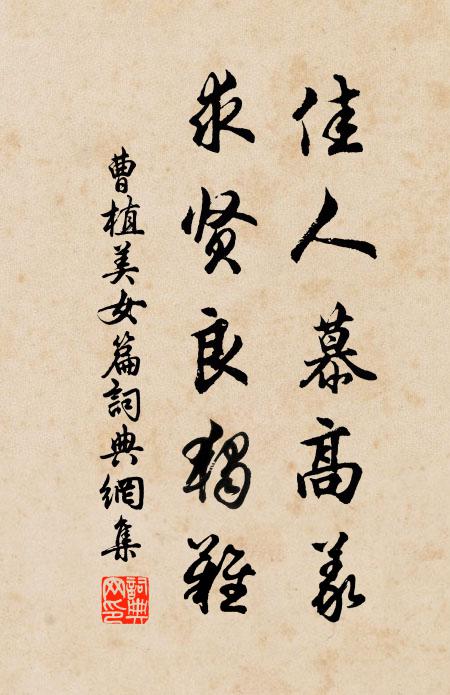 佳人慕高義
求贤良獨難
曹植美女篇詞典網集
詞典網印